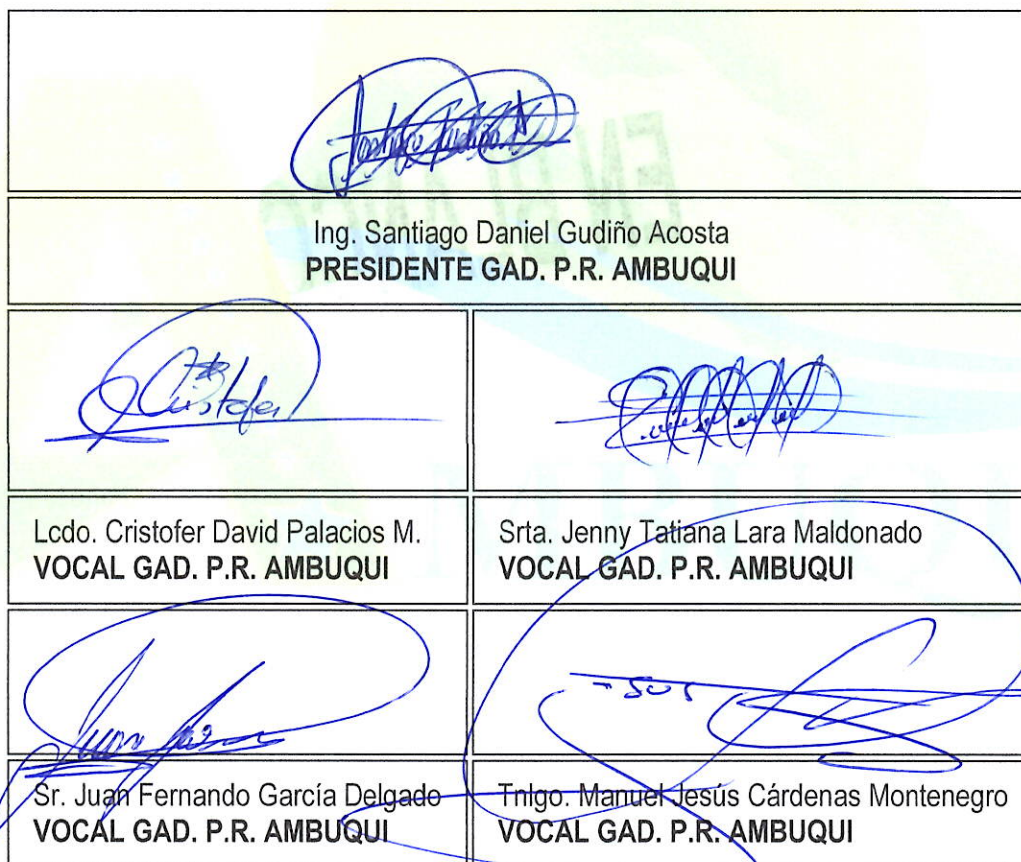 Ing. Santiago Daniel Gudiño Acosta
PRESIDENTE GAD. P.R. AMBUQUI
Cristofer
Lcdo. Cristofer David Palacios M.
VOCAL GAD. P.R. AMBUQUI
Srta. Jenny Tatiana Lara Maldonado
VOCAL GAD. P.R. AMBUQUI
Sr. Juan Fernando García Delgado
VOCAL GAD. P.R. AMBUQUI
Tnlgo. Manuel Jesús Cárdenas Montenegro
VOCAL GAD. P.R. AMBUQUI